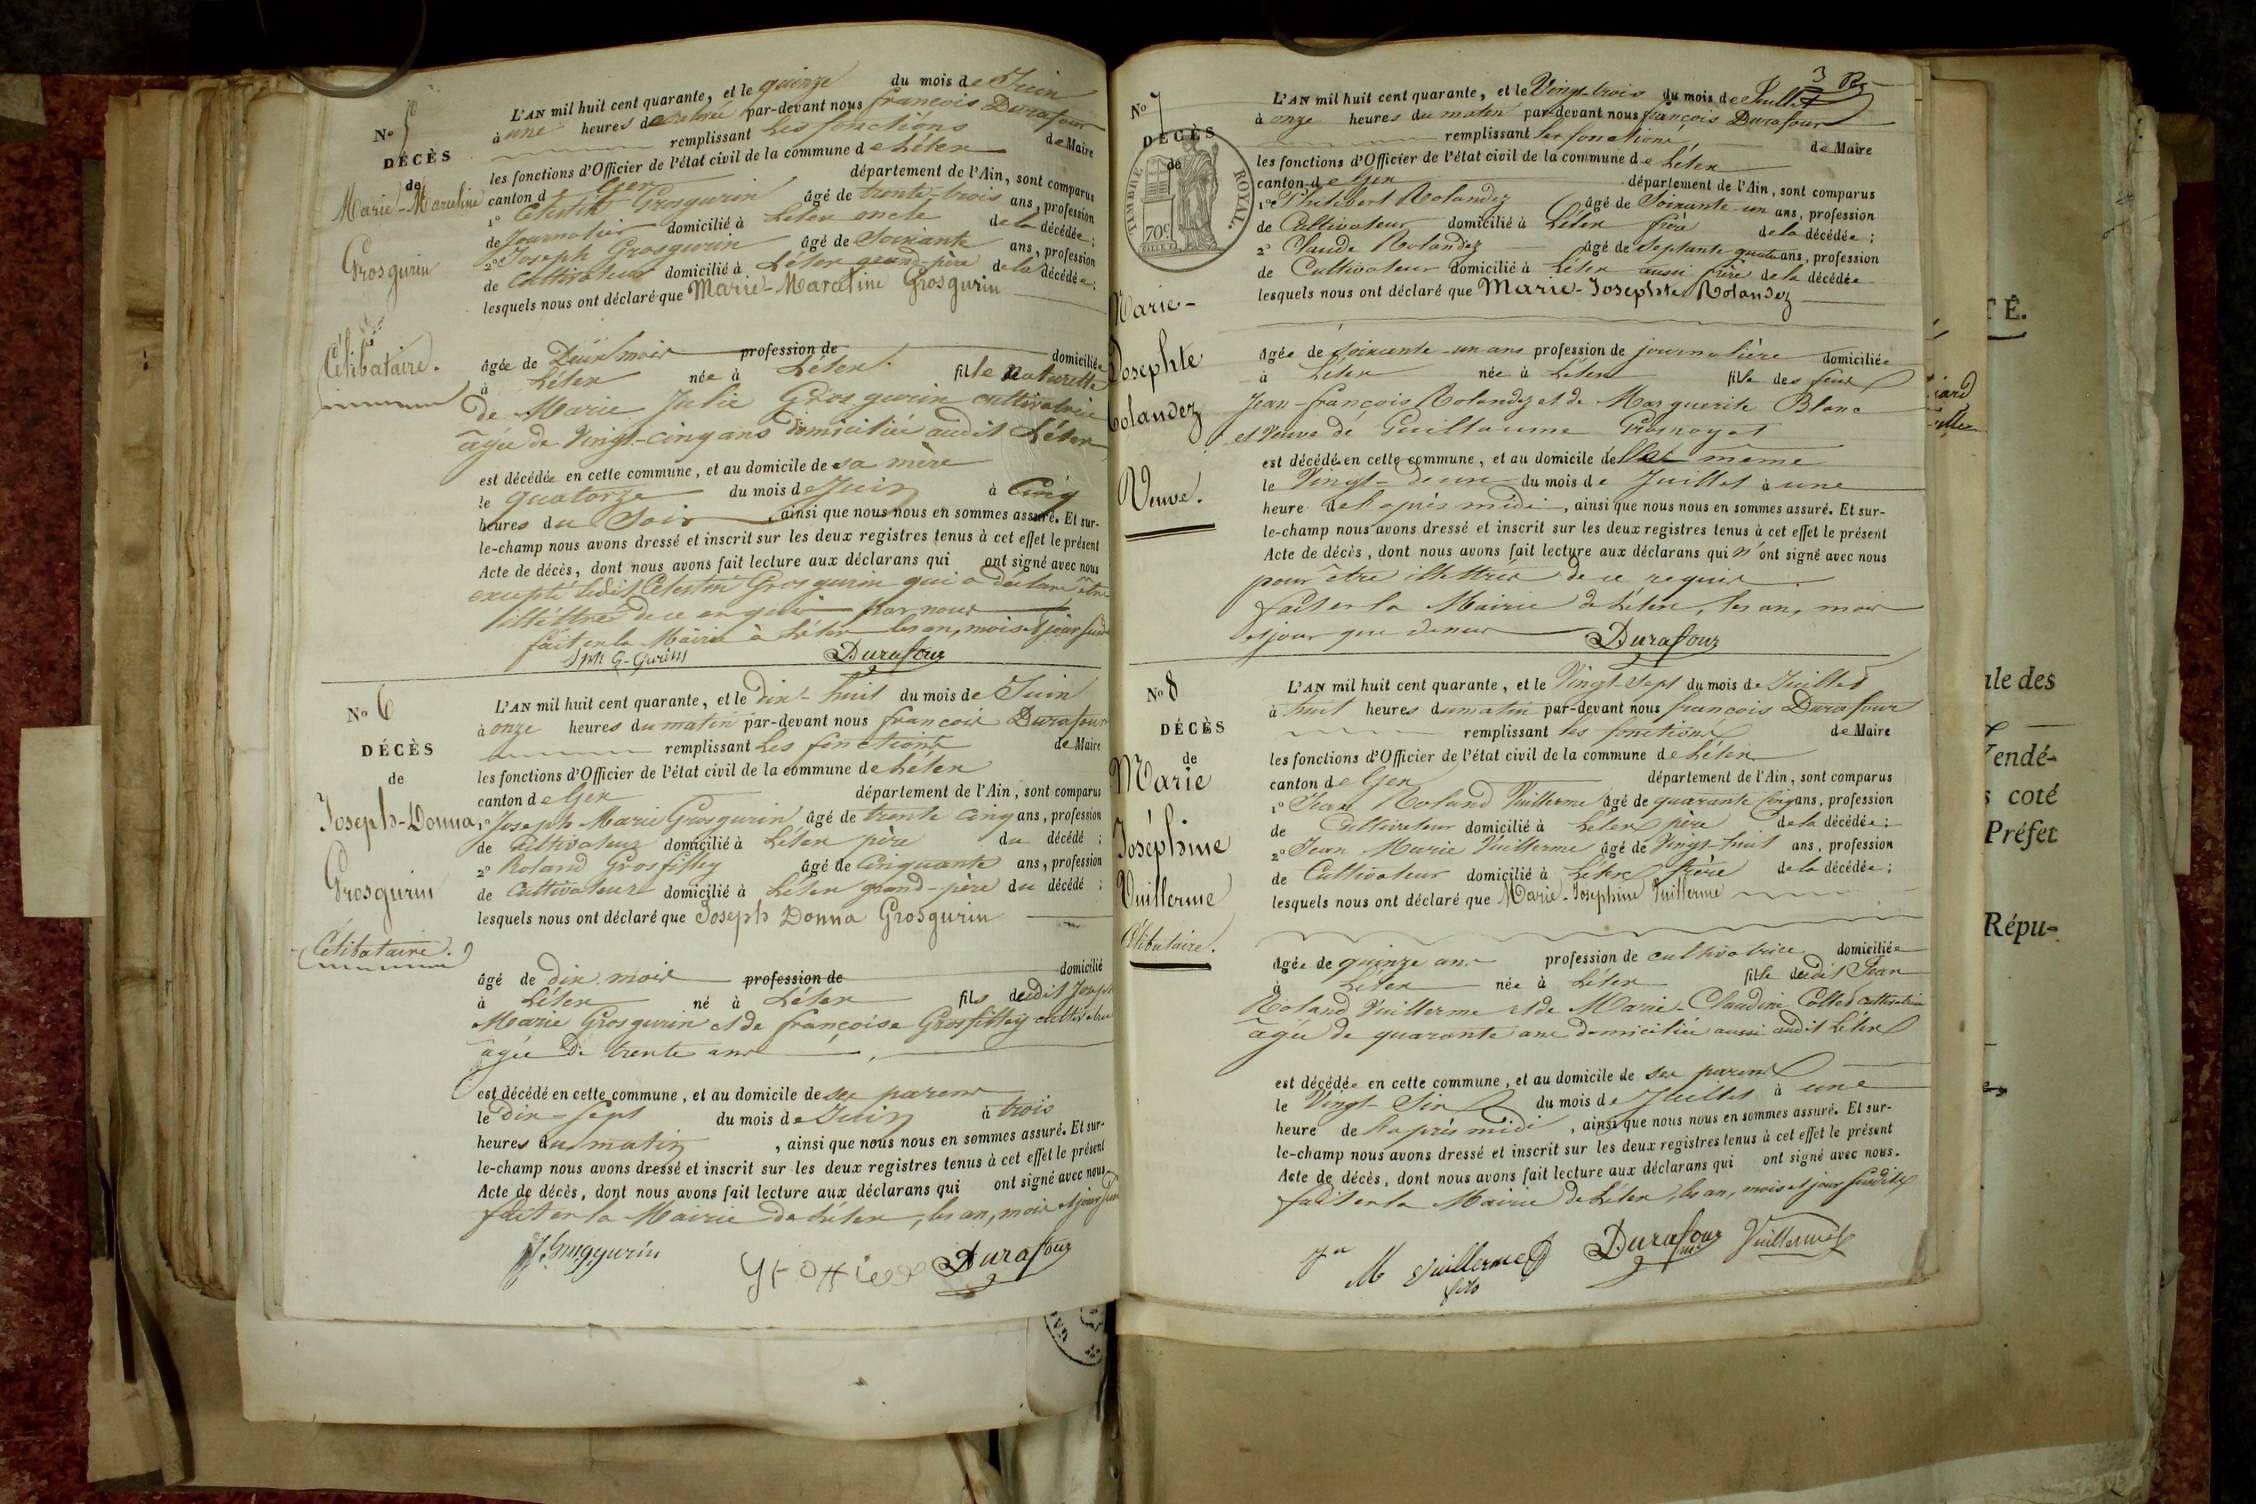 No 5
DÉCÈS
de
Marie-Marceline
Grosgurin
Célibataire.
L'AN mil huit cent quarante, et le quinze du mois de Juin
à une heures de relevée par-devant nous françois Durafour
remplissant les fonctions de Maire
les fonctions d'Officier de l'état civil de la commune de Lélex
canton de Gex département de l'Ain, sont comparus
1° Célestin Grosgurin âgé de trente-trois ans, profession
de Journalier domicilié à Lélex oncle de la décédée;
2° Joseph Grosgurin âgé de Soixante ans, profession
de Cultivateur domicilié à Lélex grand-père de la décédée;
lesquels nous ont déclaré que Marie-Marceline Grosgurin
âgée de Deux mois profession de domiciliée
à Lélex née à Lélex fille naturelle
de Marie Julie Grosgurin cultivatrice
âgée de Vingt-cinq ans domiciliée audit Lélex
est décédée en cette commune, et au domicile de sa mère
le quatorze du mois de Juin à Cinq
heures du Soir, ainsi que nous nous en sommes assuré. Et sur-
le-champ nous avons dressé et inscrit sur les deux registres tenus à cet effet le présent
Acte de décès, dont nous avons fait lecture aux déclarans qui ont signé avec nous
excepté ledit Célestin Grosgurin qui a déclaré être
illéttré de ce enquis par nous
fait en la Mairie à Lélex les an, mois et jour susd
Jph G-Gurin Durafour
No 6
DÉCÈS
de
Joseph-Donna
Grosgurin
Célibataire.
L'AN mil huit cent quarante, et le dix-huit du mois de Juin
à onze heures du matin par-devant nous françois Durafour
remplissant les fonctions de Maire
les fonctions d'Officier de l'état civil de la commune de Lélex
canton de Gex département de l'Ain, sont comparus
1° Joseph Marie Grosgurin âgé de trente cinq ans, profession
de Cultivateur domicilié à Lélex père du décédé;
2° Roland Grosfilley âgé de Cinquante ans, profession
de Cultivateur domicilié à Lélex grand-père du décédé;
lesquels nous ont déclaré que Joseph Donna Grosgurin
âgé de dix mois profession de domicilié
à Lélex né à Lélex fils dudit Joseph
Marie Grosgurin et de françoise Grosfilley
âgée de trente ans
est décédé en cette commune, et au domicile de ses parens
le Dix-Sept du mois de Juin à trois
heures du matin, ainsi que nous nous en sommes assuré. Et sur-
le-champ nous avons dressé et inscrit sur les deux registres tenus à cet effet le présent
Acte de décès, dont nous avons fait lecture aux déclarans qui ont signé avec nous
fait en la Mairie de Lélex, les an, mois et jour
Durafour
3
No 7
DÉCÈS
de
TIMBRE ROYAL.
70c
Marie-
Josephte
Rolandez
Veuve.
L'AN mil huit cent quarante, et le Vingt-trois du mois de Juillet
à onze heures du matin par-devant nous françois Durafour
remplissant les fonctions de Maire
les fonctions d'Officier de l'état civil de la commune de Lélex
canton de Gex département de l'Ain, sont comparus
1° Philibert Rolandez âgé de Soixante-un ans, profession
de Cultivateur domicilié à Lélex frère de la décédée;
2° Claude Rolandez âgé de Septante quatre ans, profession
de Cultivateur domicilié à Lélex aussi frère de la décédée
lesquels nous ont déclaré que Marie-Josephte Rolandez
âgée de Soixante-un ans profession de journalière domiciliée
à Lélex née à Lélex fille des feux
Jean-françois Rolandez et de Marguerite Blanc
et Veuve de Guillaume
est décédée en cette commune, et au domicile de même
le Vingt-deux du mois de Juillet à une
heure de l'après midi, ainsi que nous nous en sommes assuré. Et sur-
le-champ nous avons dressé et inscrit sur les deux registres tenus à cet effet le présent
Acte de décès, dont nous avons fait lecture aux déclarans qui n'ont signé avec nous
pour être illettrés de ce requis
fait en la Mairie de Lélex, les an, mois
et jour que dessus Durafour
No 8
DÉCÈS
de
Marie
Joséphine
Vuillerme
Célibataire.
L'AN mil huit cent quarante, et le Vingt-Sept du mois de Juillet
à huit heures du matin par-devant nous françois Durafour
remplissant les fonctions de Maire
les fonctions d'Officier de l'état civil de la commune de Lélex
canton de Gex département de l'Ain, sont comparus
1° Jean Roland Vuillerme âgé de quarante cinq ans, profession
de Cultivateur domicilié à Lélex père de la décédée;
2° Jean Marie Vuillerme âgé de Vingt-huit ans, profession
de Cultivateur domicilié à Lélex frère de la décédée;
lesquels nous ont déclaré que Marie-Josephine Vuillerme
âgée de quinze ans profession de cultivatrice domiciliée
à Lélex née à Lélex fille dudit Jean
Roland Vuillerme et de Marie-Claudine Collet cultivatrice
âgée de quarante ans domiciliée aussi audit Lélex
est décédée en cette commune, et au domicile de ses parens
le Vingt-Six du mois de Juillet à une
heure de l'après midi, ainsi que nous nous en sommes assuré. Et sur-
le-champ nous avons dressé et inscrit sur les deux registres tenus à cet effet le présent
Acte de décès, dont nous avons fait lecture aux déclarans qui ont signé avec nous.
fait en la Mairie de Lélex, les an, mois et jour susdits
M Vuillerme fils Durafour Vuillerme
TÉ.
ale des
Vendé-
s coté
Préfet
Répu-